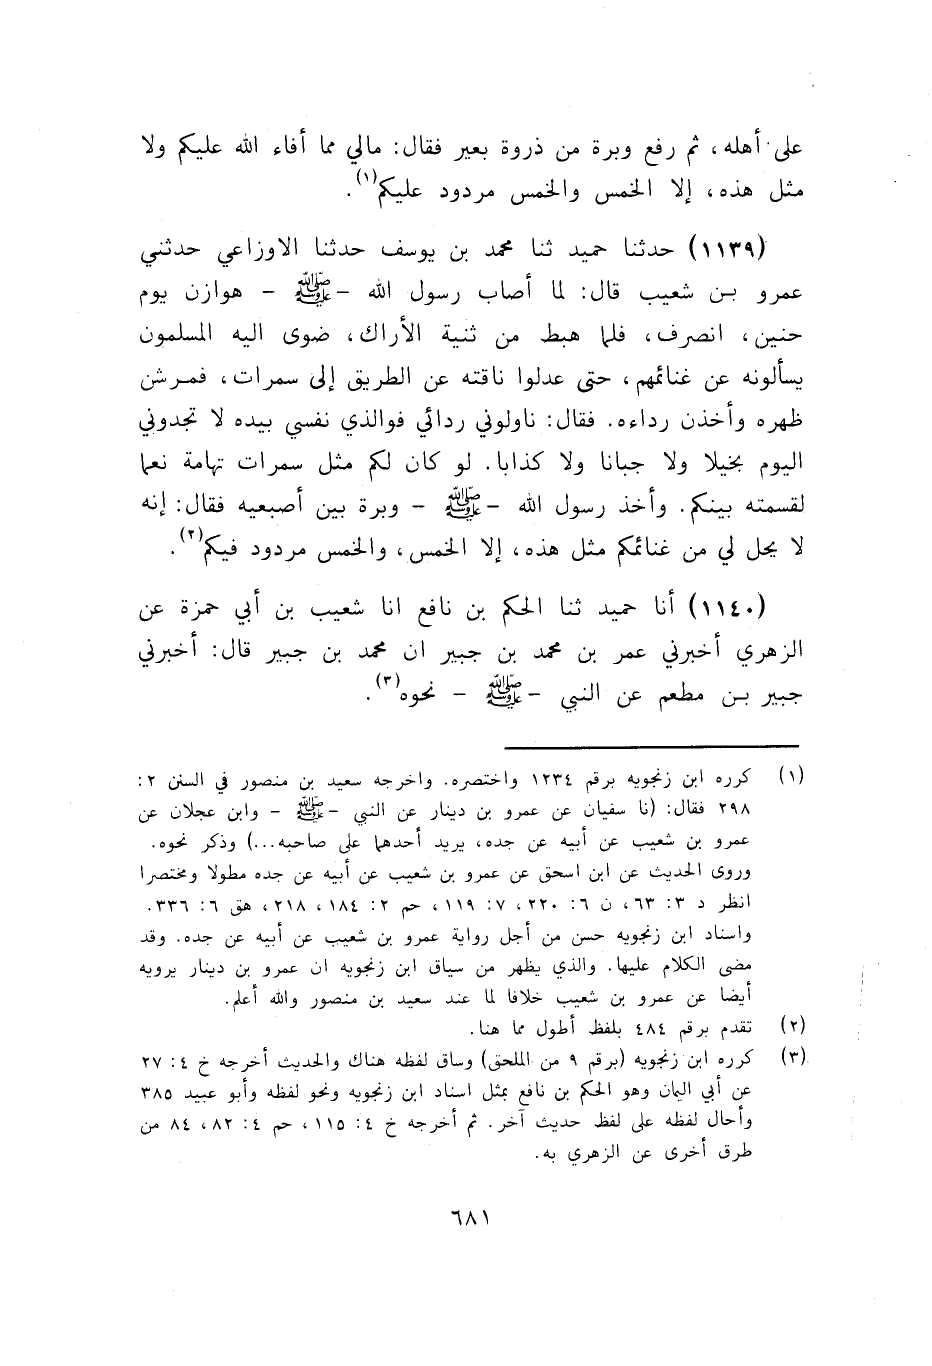 على أهله، ثم رفع وبرة من ذروة بعير فقال: مالي مما أفاء الله عليكم ولا
مثل هذه، إلا الخمس والخمس مردود عليكم(١).
(١١٣٩) حدثنا حميد ثنا محمد بن يوسف حدثنا الاوزاعي حدثني
عمرو بن شعيب قال: لما أصاب رسول الله - ﷺ - هوازن يوم
حنين، انصرف، فلما هبط من ثنية الأراك، ضوى اليه المسلمون
يسألونه عن غنائمهم، حتى عدلوا ناقته عن الطريق إلى سمرات، فمرشن
ظهره وأخذن رداءه. فقال: ناولوني ردائي فوالذي نفسي بيده لا تجدوني
اليوم بخيلا ولا جبانا ولا كذابا. لو كان لكم مثل سمرات تهامة نعما
لقسمته بينكم. وأخذ رسول الله - ﷺ - وبرة بين أصبعيه فقال: إنه
لا يحل لي من غنائمكم مثل هذه، إلا الخمس، والخمس مردود فيكم(٢).
(١١٤٠) أنا حميد ثنا الحكم بن نافع انا شعيب بن أبي حمزة عن
الزهري أخبرني عمر بن محمد بن جبير ان محمد بن جبير قال: أخبرني
جبير بن مطعم عن النبي - ﷺ - نحوه(٣).
(١) كرره ابن زنجويه برقم ١٢٣٤ واختصره. واخرجه سعيد بن منصور في السنن ٢:
٢٩٨ فقال: (نا سفيان عن عمرو بن دينار عن النبي - ﷺ - وابن عجلان عن
عمرو بن شعيب عن أبيه عن جده، يريد أحدهما على صاحبه...) وذكر نحوه.
وروى الحديث عن ابن اسحق عن عمرو بن شعيب عن أبيه عن جده مطولا ومختصرا
انظر د ٣: ٦٣، ن ٦: ٢٢٠، ٧: ١١٩، حم ٢: ١٨٤، ٢١٨، هق ٦: ٣٣٦.
واسناد ابن زنجويه حسن من أجل رواية عمرو بن شعيب عن أبيه عن جده. وقد
مضى الكلام عليها. والذي يظهر من سياق ابن زنجويه ان عمرو بن دينار يرويه
أيضا عن عمرو بن شعيب خلافا لما عند سعيد بن منصور والله أعلم.
(٢) تقدم برقم ٤٨٤ بلفظ أطول مما هنا.
(٣) كرره ابن زنجويه (برقم ٩ من الملحق) وساق لفظه هناك والحديث أخرجه خ ٤: ٢٧
عن أبي اليمان وهو الحكم بن نافع بمثل اسناد ابن زنجويه ونحو لفظه وأبو عبيد ٣٨٥
وأحال لفظه على لفظ حديث آخر. ثم أخرجه خ ٤: ١١٥، حم ٤: ٨٢، ٨٤ من
طرق أخرى عن الزهري به.
٦٨١